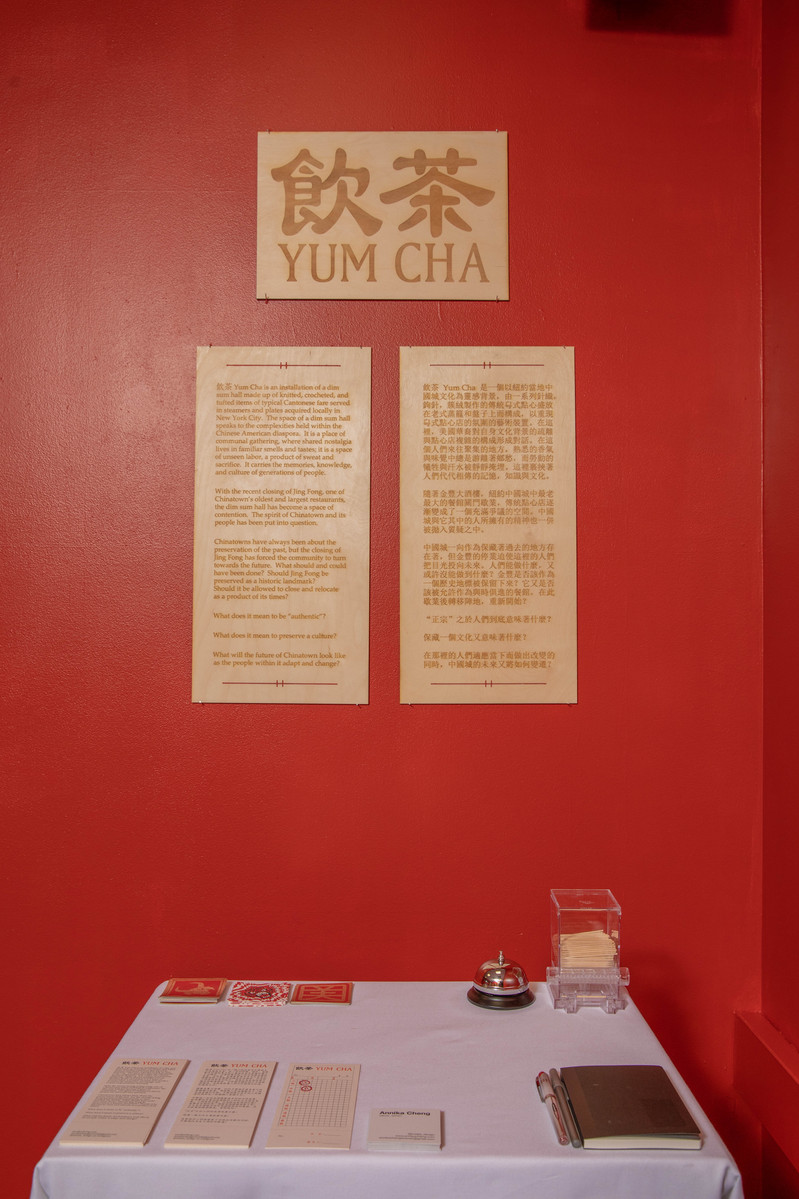 飲茶
YUM CHA
飲茶 Yum Cha is an installation of a dim
sum hall made up of knitted, crocheted, and
tufted items of typical Cantonese fare served
in steamers and plates acquired locally in
New York City. The space of a dim sum hall
speaks to the complexities held within the
Chinese American diaspora. It is a place of
communal gathering, where shared nostalgia
lives in familiar smells and tastes; it is a space
of unseen labor, a product of sweat and
sacrifice. It carries the memories, knowledge,
and culture of generations of people.
With the recent closing of Jing Fong, one of
Chinatown's oldest and largest restaurants,
the dim sum hall has become a space of
contention. The spirit of Chinatown and its
people has been put into question.
Chinatowns have always been about the
preservation of the past, but the closing of
Jing Fong has forced the community to turn
towards the future. What should and could
have been done? Should Jing Fong be
preserved as a historic landmark?
Should it be allowed to close and relocate
as a product of its times?
What does it mean to be "authentic"?
What does it mean to preserve a culture?
What will the future of Chinatown look like
as the people within it adapt and change?
飲茶 Yum Cha 是一個以紐約當地中
國城文化為靈感背景，由一系列針織，
鉤針，簇絨製作的傳統粵式點心盛放
在老式蒸籠和盤子上而構成，以重現
粵式點心店的氛圍的藝術裝置。在這
裡，美國華裔對自身文化背景的疏離
與點心店複雜的構成形成對話。在這
個人們來往聚集的地方，熟悉的香氣
與味覺中總是蘊藏著鄉愁，而勞動的
犧牲與汗水被靜靜掩埋。這裡裹挾著
人們代代相傳的記憶，知識與文化。
隨著金豐大酒樓，紐約中國城中最老
最大的餐館關門歇業，傳統點心店逐
漸變成了一個充滿爭議的空間。中國
城與它其中的人所擁有的精神也一併
被拋入質疑之中。
中國城一向作為保藏著過去的地方存
在著，但金豐的停業迫使這裡的人們
把目光投向未來。人們能做什麼，又
或許沒能做到什麼？金豐是否該作為
一個歷史地標被保留下來？它又是否
該被允許作為與時俱進的餐館，在此
歇業後轉移陣地，重新開始？
“正宗”之於人們到底意味著什麼？
保藏一個文化又意味著什麼？
在那裡的人們適應當下而做出改變的
同時，中國城的未來又將如何變遷？
飲茶 YUM CHA
飲茶 YUM CHA
飲茶 YUM CHA
Annika Cheng